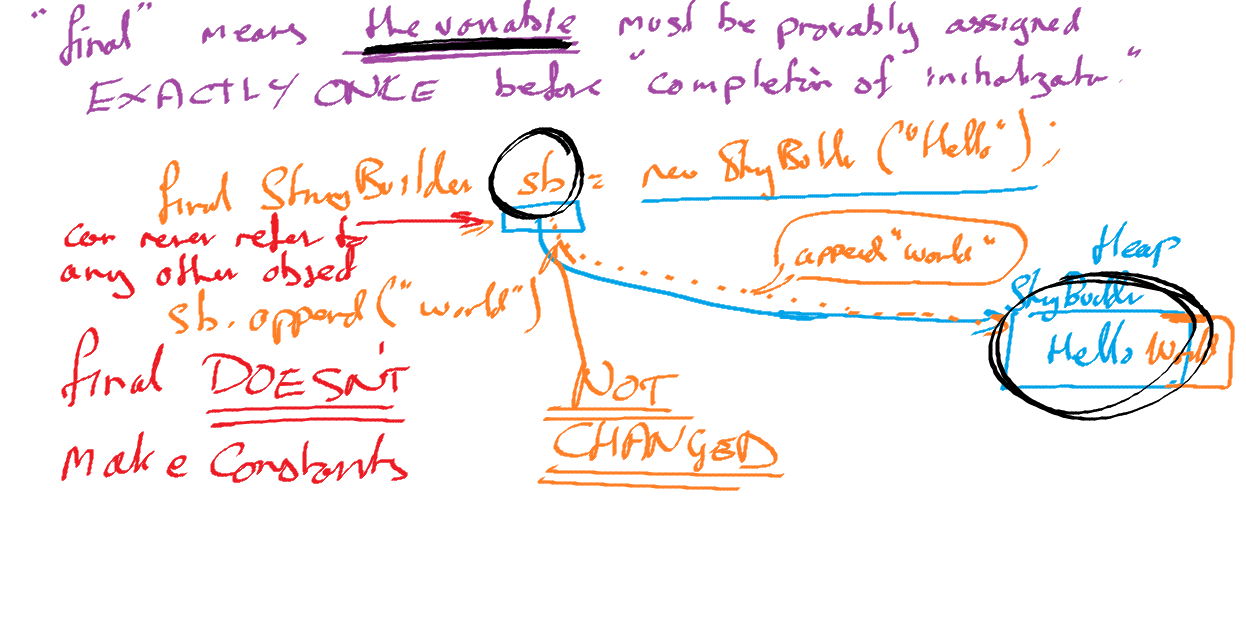 "final" means the variable must be provably assigned
EXACTLY ONCE before "completion of initialization."
final StringBuilder sb = new StringBuilder ("Hello");
can never refer to
any other object
append "world"
Heap
StringBuilder
Hello World
sb.append("world")
final DOESN'T
Make Constants
NOT
CHANGED